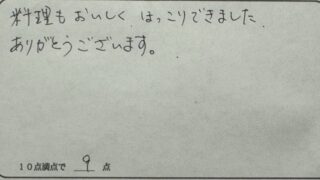 料理もおいしく、ほっこりできました。
ありがとうございます。
10点満点で 9 点